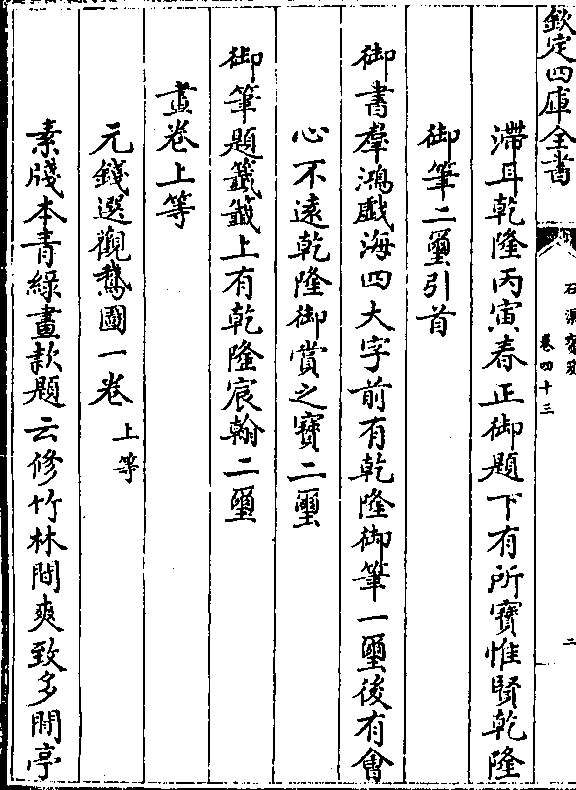 欽定四庫全書
石渠寶笈
卷四十三
二
滯耳乾隆丙寅春正御題下有所寶惟賢乾隆
御筆二璽引首
御書羣鴻戯海四大字前有乾隆御筆一璽後有會
心不遠乾隆御賞之寶二璽
御筆題籤籤上有乾隆宸翰二璽
畫卷上等
元錢選觀鵞圖一卷上等
素牋本青綠畫款題云修竹林間爽致多閒亭